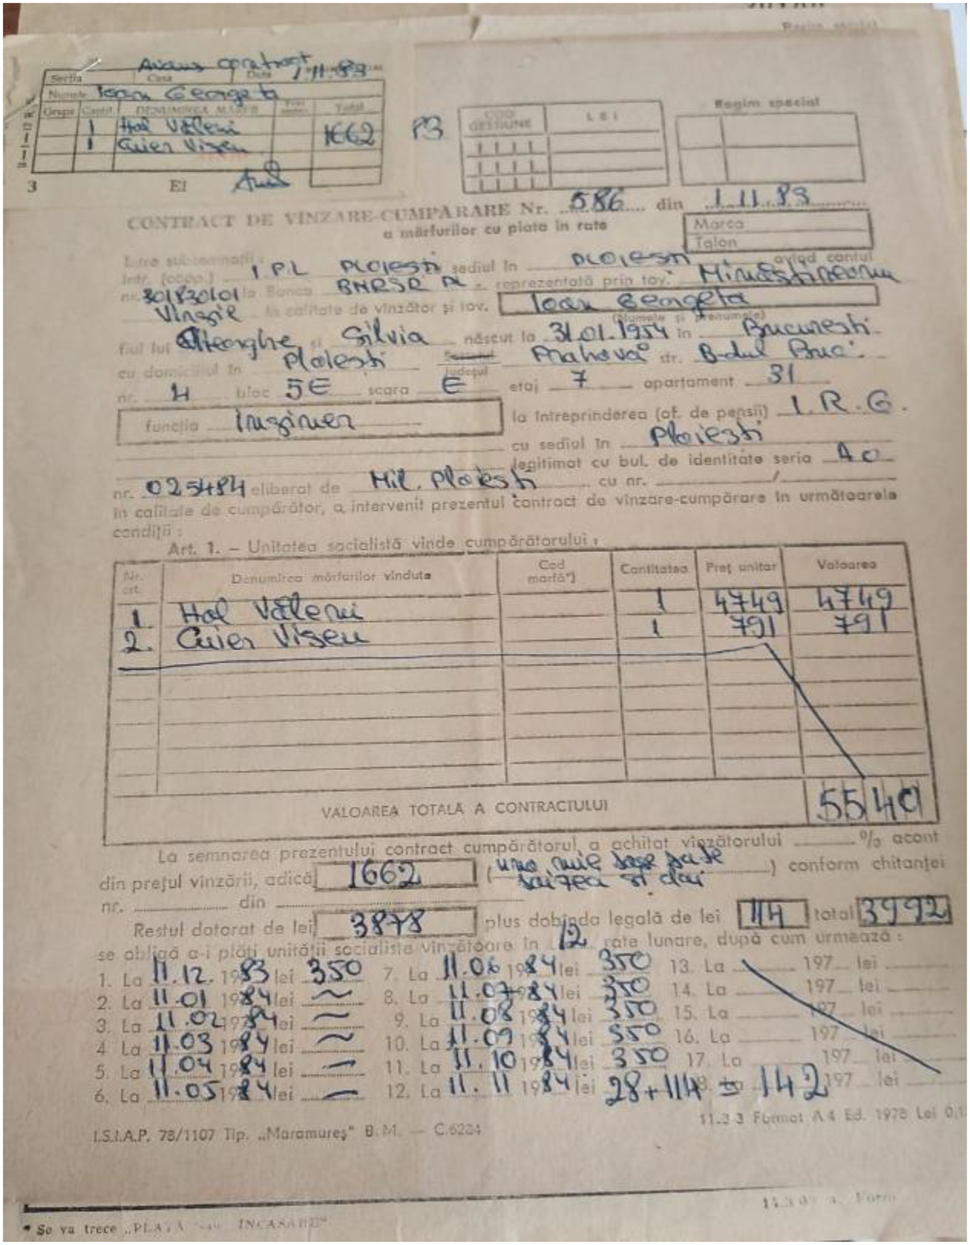 Regim special
Avans contract
Secția Casa Data 1.11.83
Numele Ioan Georgeta
Grupa Cantit. DENUMIREA MĂRFII Preț Total
1 Hol Văleni 1662
1 Cuier Vișeu
P3
COD GESTIUNE LEI
Regim special
3 El
CONTRACT DE VÎNZARE-CUMPĂRARE Nr. 586 din 1.11.83
a mărfurilor cu plata în rate
Marca
Talon
Între subsemnații: avînd contul
Într. (coop.) I P L Ploiești sediul în Ploiești
nr. la Banca reprezentată prin tov.
în calitate de vînzător și tov. Ioan Georgeta
(Numele și prenumele)
fiul lui Gheorghe și Silvia născut la 31.01.1954 în București
cu domiciliul în Ploiești Sectorul Județul Prahova str. B-dul Buc.
nr. 4 bloc 5E scara E etaj 7 apartament 31
funcția inginer la întreprinderea (of. de pensii) I.R.G.
cu sediul în Ploiești
legitimat cu bul. de identitate seria A O
nr. 025484 eliberat de Mil. Ploiești cu nr. /
în calitate de cumpărător, a intervenit prezentul contract de vînzare-cumpărare în următoarele
condiții :
Art. 1. – Unitatea socialistă vinde cumpărătorului :
Nr. crt. Denumirea mărfurilor vîndute Cod marfă*) Cantitatea Preț unitar Valoarea
1 Hol Văleni 1 4749 4749
2. Cuier Vișeu 1 791 791
VALOAREA TOTALĂ A CONTRACTULUI 5540
La semnarea prezentului contract cumpărătorul a achitat vînzătorului % acont
din prețul vînzării, adică 1662 (una mie șase sute șaizeci și doi) conform chitanței
nr. din
Restul datorat de lei 3878 plus dobînda legală de lei 114 total 3992
se obligă a-i plăti unității socialiste vînzătoare în 12 rate lunare, după cum urmează :
1. La 11.12. 1983 lei 350 7. La 11.06 1984 lei 350 13. La 197 lei
2. La 11.01 1984 lei ~ 8. La 11.07 1984 lei 350 14. La 197 lei
3. La 11.02 1984 lei ~ 9. La 11.08 1984 lei 350 15. La 197 lei
4 La 11.03 1984 lei ~ 10. La 11.09 1984 lei 350 16. La 197 lei
5. La 11.04 1984 lei — 11. La 11.10 1984 lei 350 17. La 197 lei
6. La 11.05 1984 lei — 12. La 11.11 1984 lei 28+114 = 142 197 lei
I.S.I.A.P. 78/1107 Tip. „Maramureș" B. M. — C.6224
11.3 3 Format A4 Ed. 1978 Lei
* Se va trece „PLATĂ sau ÎNCASARE"